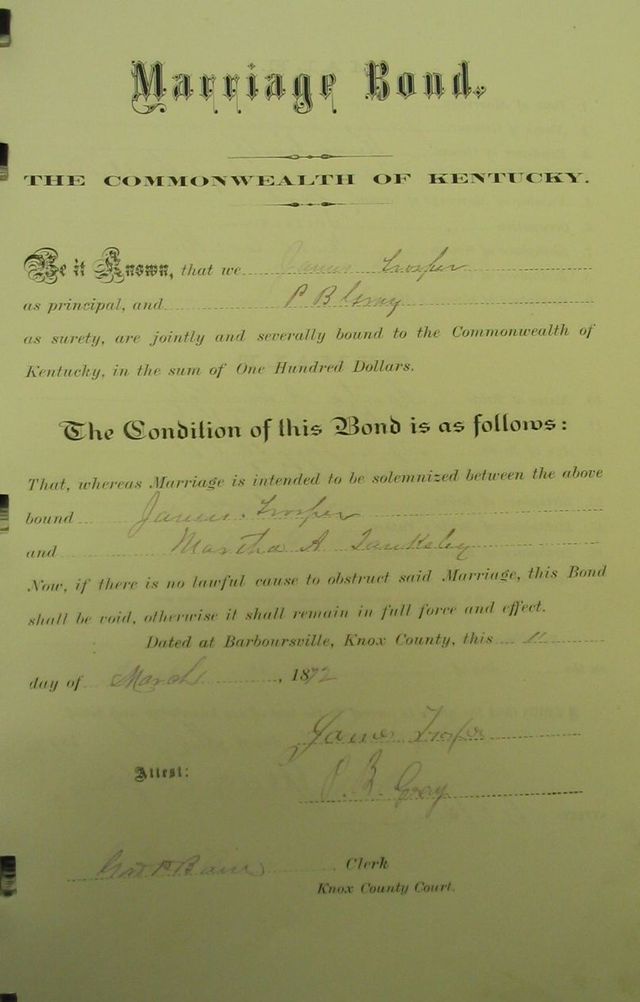 Marriage Bond.
THE COMMONWEALTH OF KENTUCKY.
Be it Known, that we James Trosper
as principal, and P B Gray
as surety, are jointly and severally bound to the Commonwealth of
Kentucky, in the sum of One Hundred Dollars.
The Condition of this Bond is as follows:
That, whereas Marriage is intended to be solemnized between the above
bound James Trosper
and Martha A Tanksley
Now, if there is no lawful cause to obstruct said Marriage, this Bond
shall be void, otherwise it shall remain in full force and effect.
Dated at Barboursville, Knox County, this 11
day of March, 1872
James Trosper
P. B. Gray
Attest:
Clerk
Knox County Court.